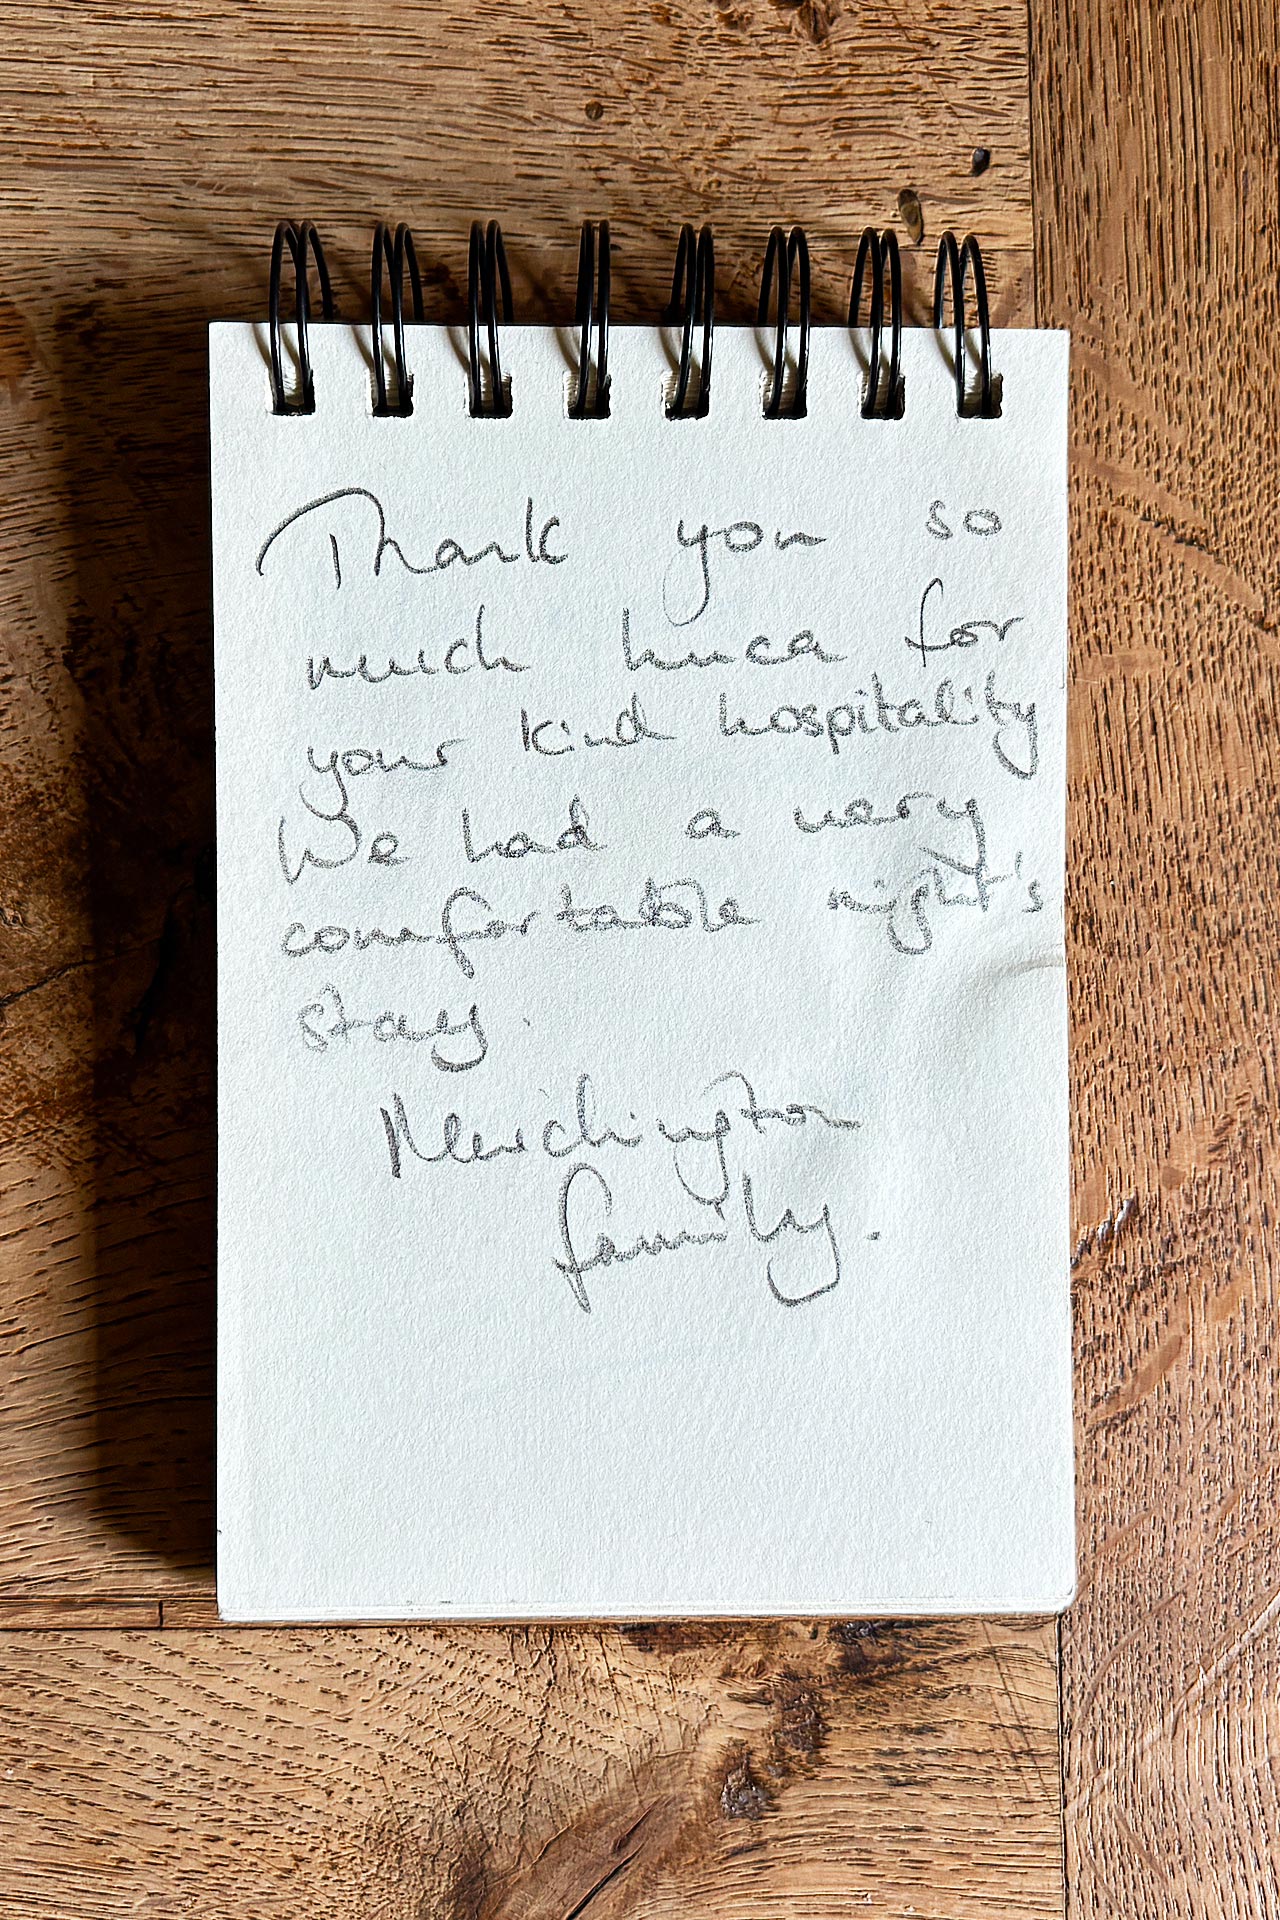 Thank you so
much Luca for
your kind hospitality
We had a very
comfortable night's
stay.
family.